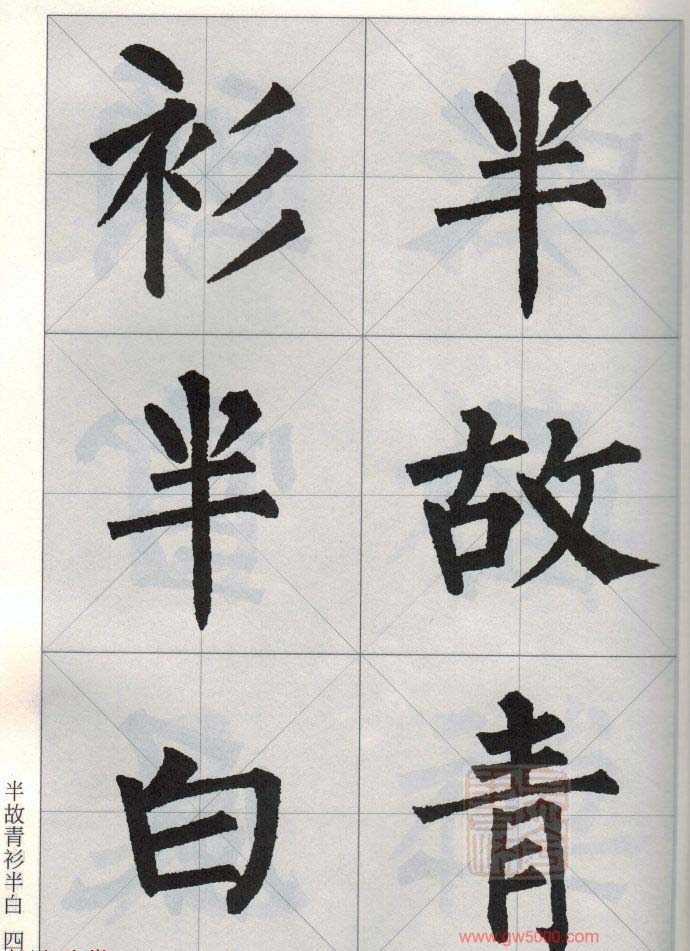 半故青
衫半白
半故青衫半白 四
www.gw5000.com